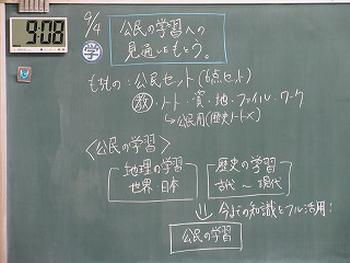 9:08
9/4
学
公民の学習への
見通しをもとう。
もちもの:公民セット(6点セット)
教・ノート・資・地・ファイル・ワーク
↳公民用(歴史ノート×)
<公民の学習>
地理の学習
世界・日本
歴史の学習
古代 〜 現代
⇓ 今までの知識をフル活用!
公民の学習